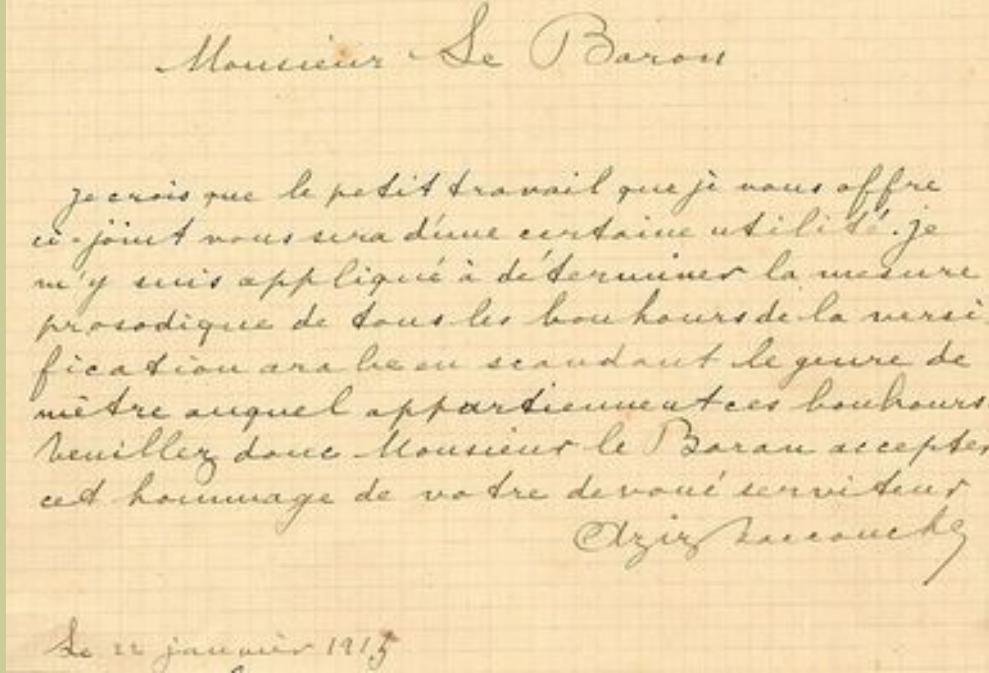 Monsieur Le Baron
je crois que le petit travail que je vous offre
ci-joint vous sera d'une certaine utilité. je
m'y suis appliqué à déterminer la mesure
prosodique de tous les bouhours de la versi
fication arabe en scandant le genre de
mètre auquel appartiennent ces bouhours.
Veuillez donc Monsieur le Baron accepter
cet hommage de votre devoué serviteur
Aziz
Le 22 janvier 1915